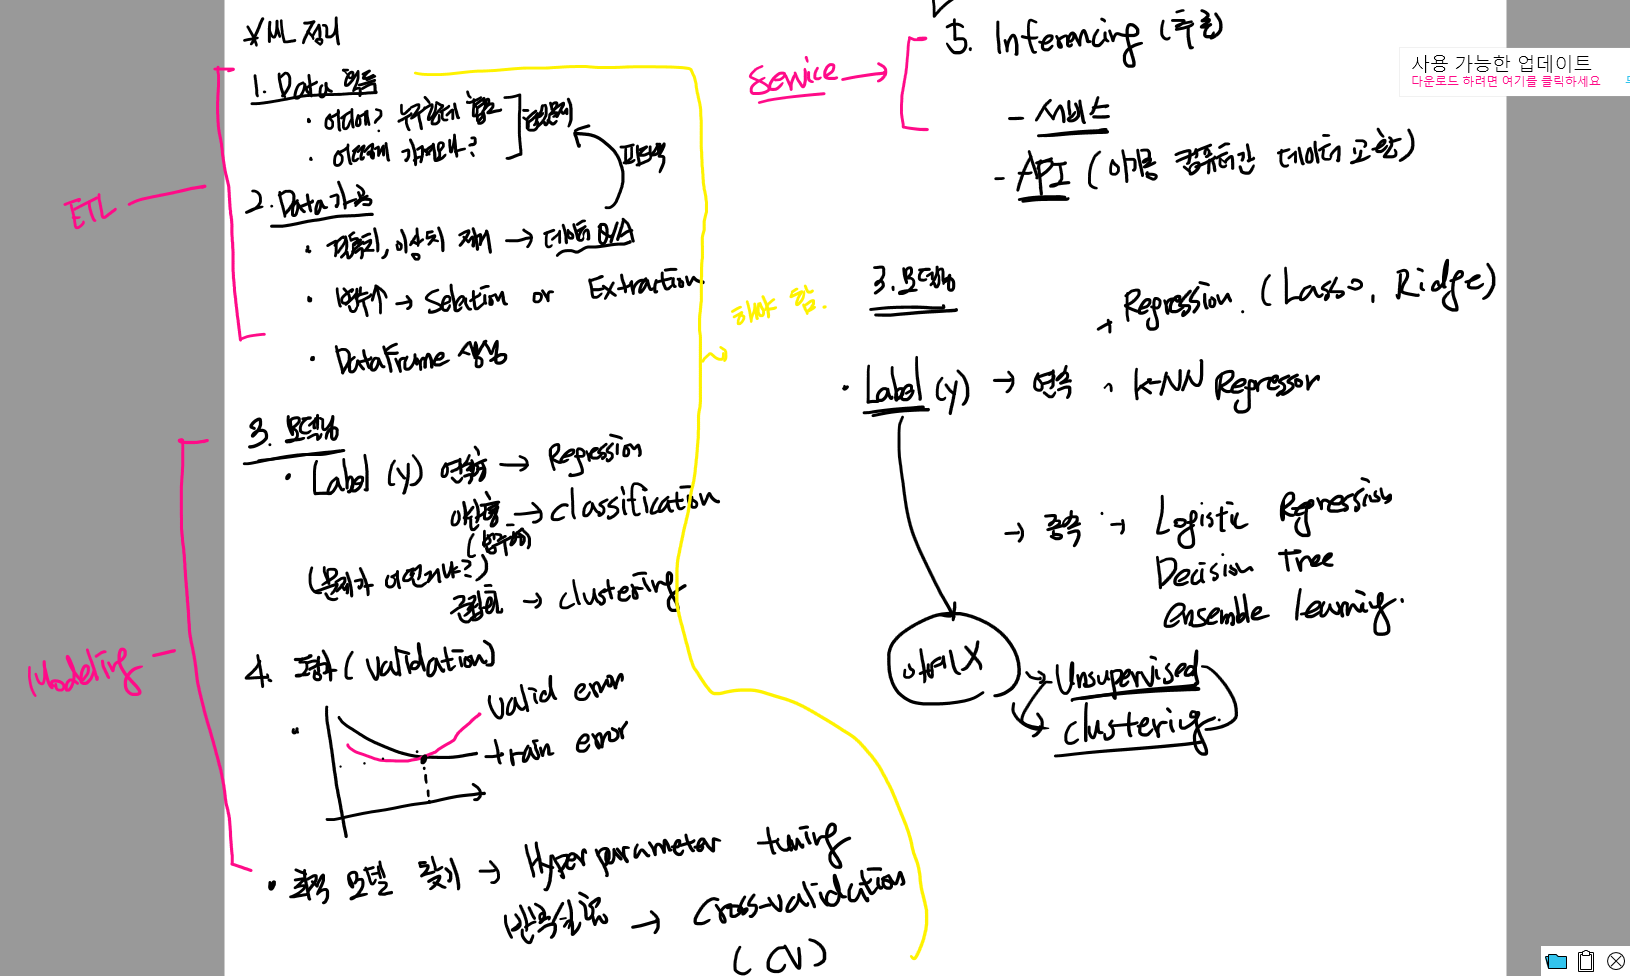 * ML 정리
1. Data 획득
· 어디에? 누구한테
· 어떻게 가져오나?
ETL
2. Data 가공
· 결측치, 이상치 제거 → 데이터 Q/A
· 변수 ↑ → Selation or Extraction
· DataFrame 생성
3. 모델링
· Label (y) 연속형 → Regression
이산형 → classification
(범주형)
(문제가 어떤거냐?)
군집화 → clustering
Modeling
4. 평가 (validation)
valid error
train error
· 최적 모델 찾기 → Hyper parameter tuning
반복실험 → Cross-validation
(CV)
해야 함.
Service
5. Inferencing (추론)
- 서비스
- API (이기종 컴퓨터간 데이터 교환)
3. 모델링
Regression. (Lasso, Ridge)
· Label (y) → 연속, K-NN Regressor
→ 종속 → Logistic Regression
Decision Tree
Ensemble learning.
X
→ Unsupervised
→ clustering.
사용 가능한 업데이트
다운로드 하려면 여기를 클릭하세요